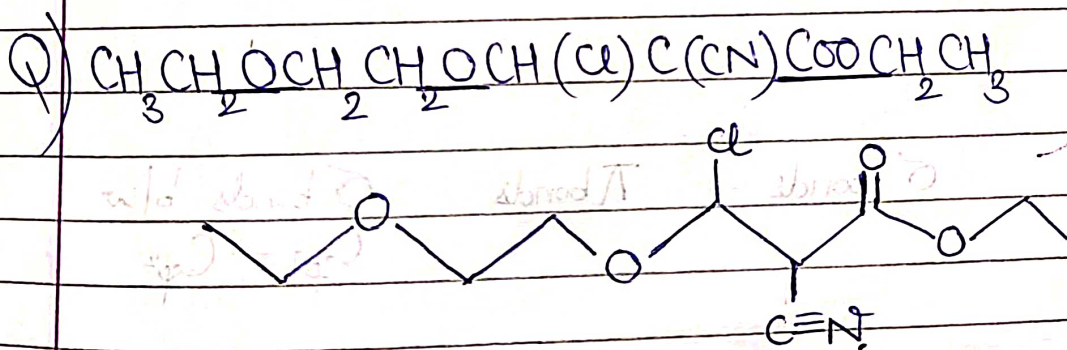 Q) CH₃CH₂OCH₂CH₂OCH(Cl)C(CN)COOCH₂CH₃
Cl
O
O
O
O
C≡N